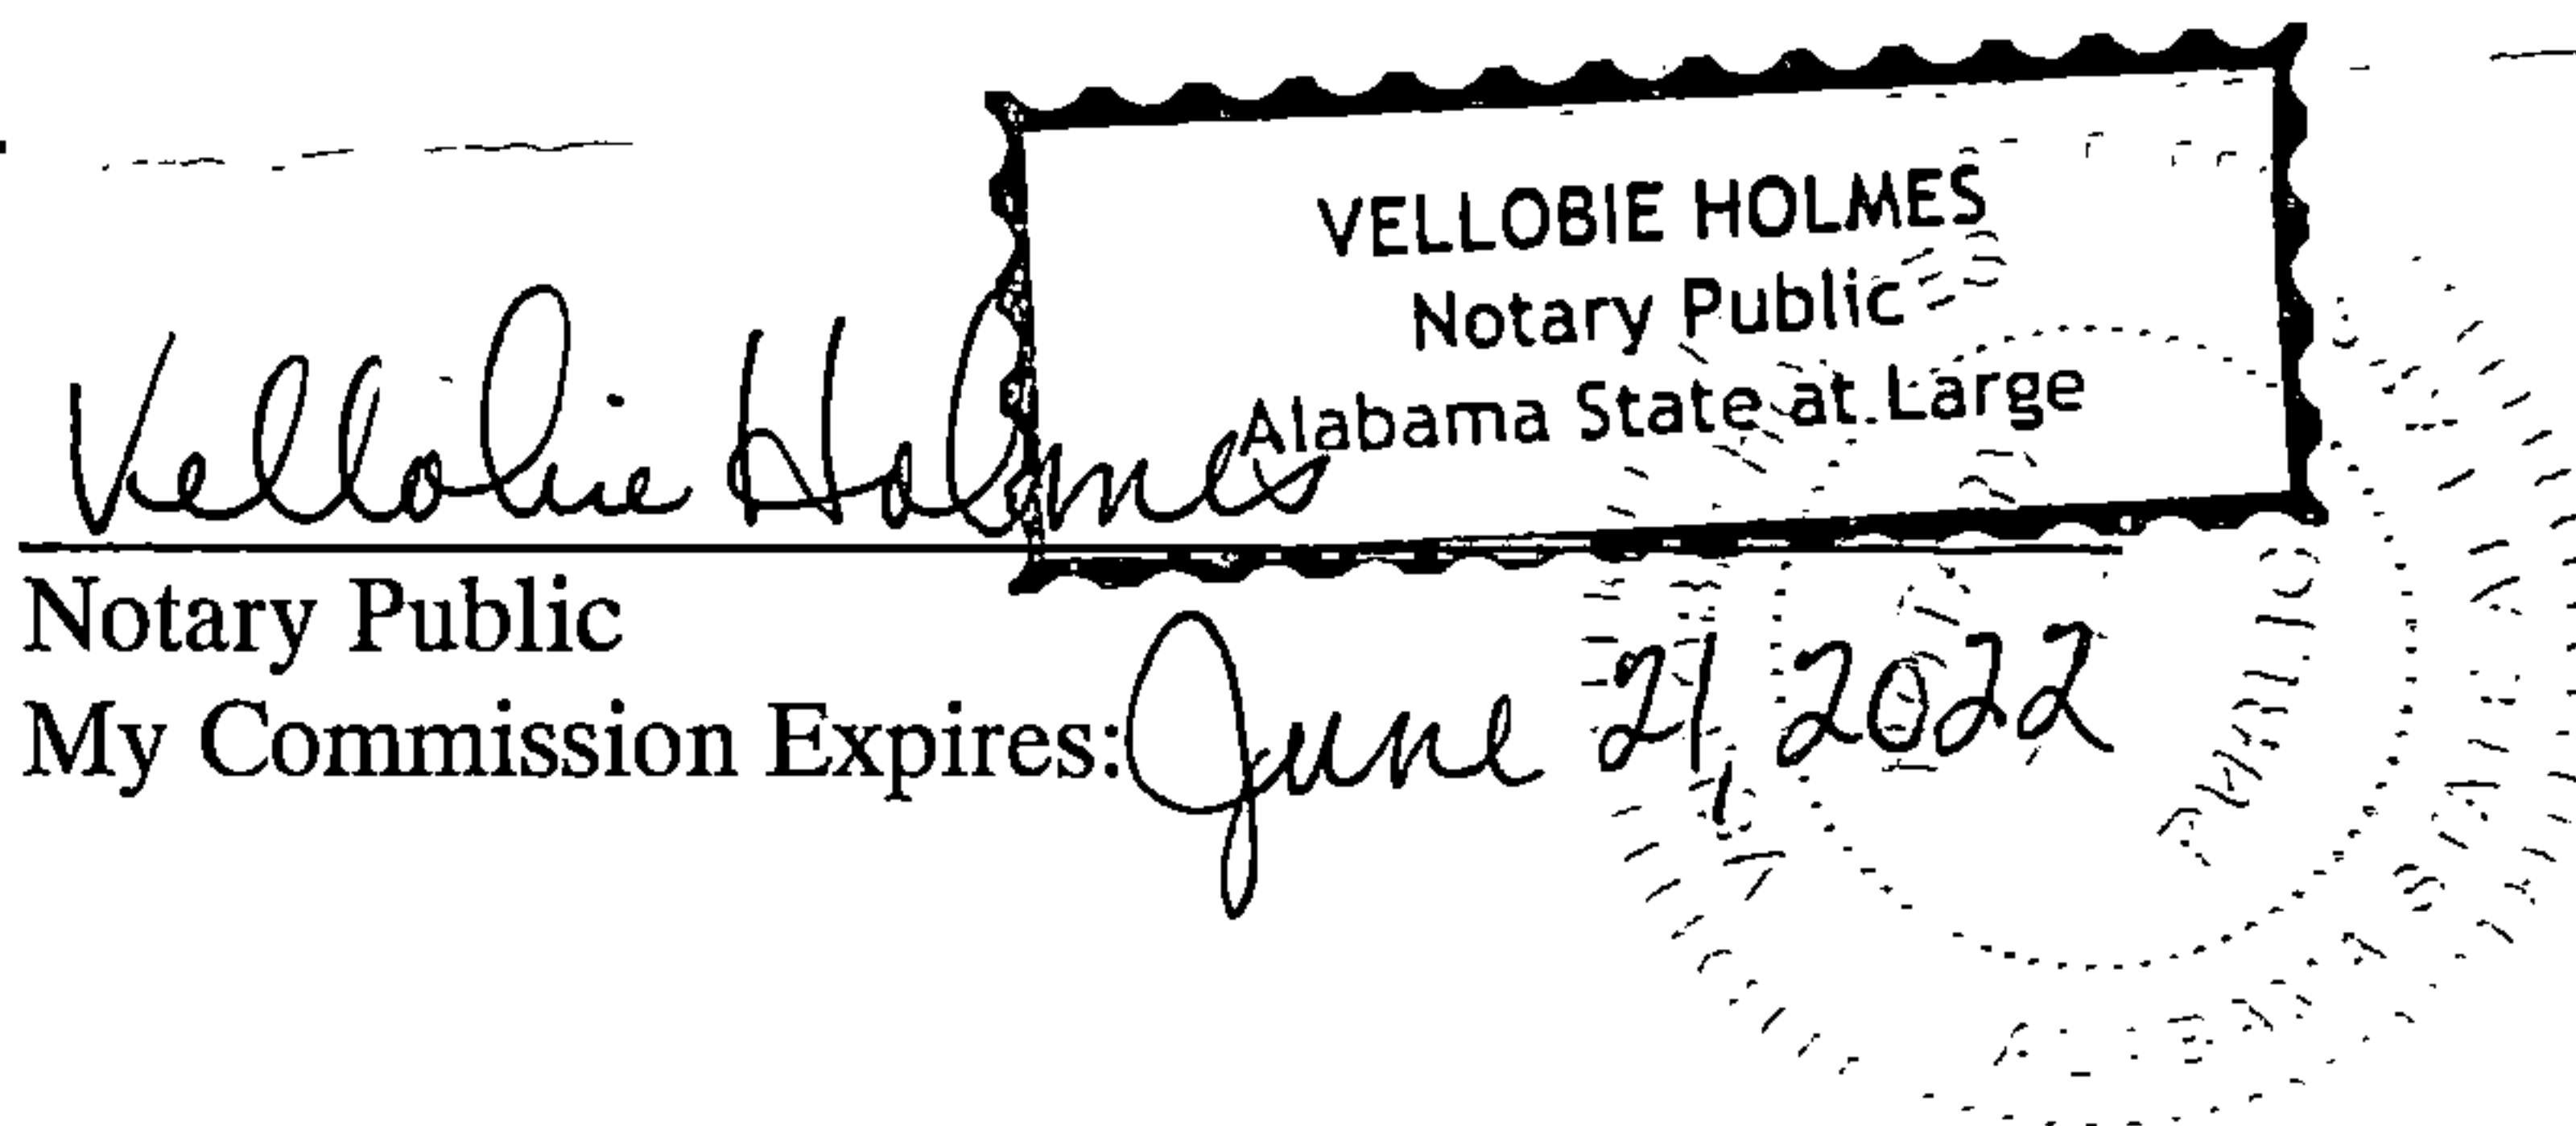 VELLOBIE HOLMES
Notary Public
Alabama State at Large
Vellobie Holmes
Notary Public
My Commission Expires: June 21, 2022